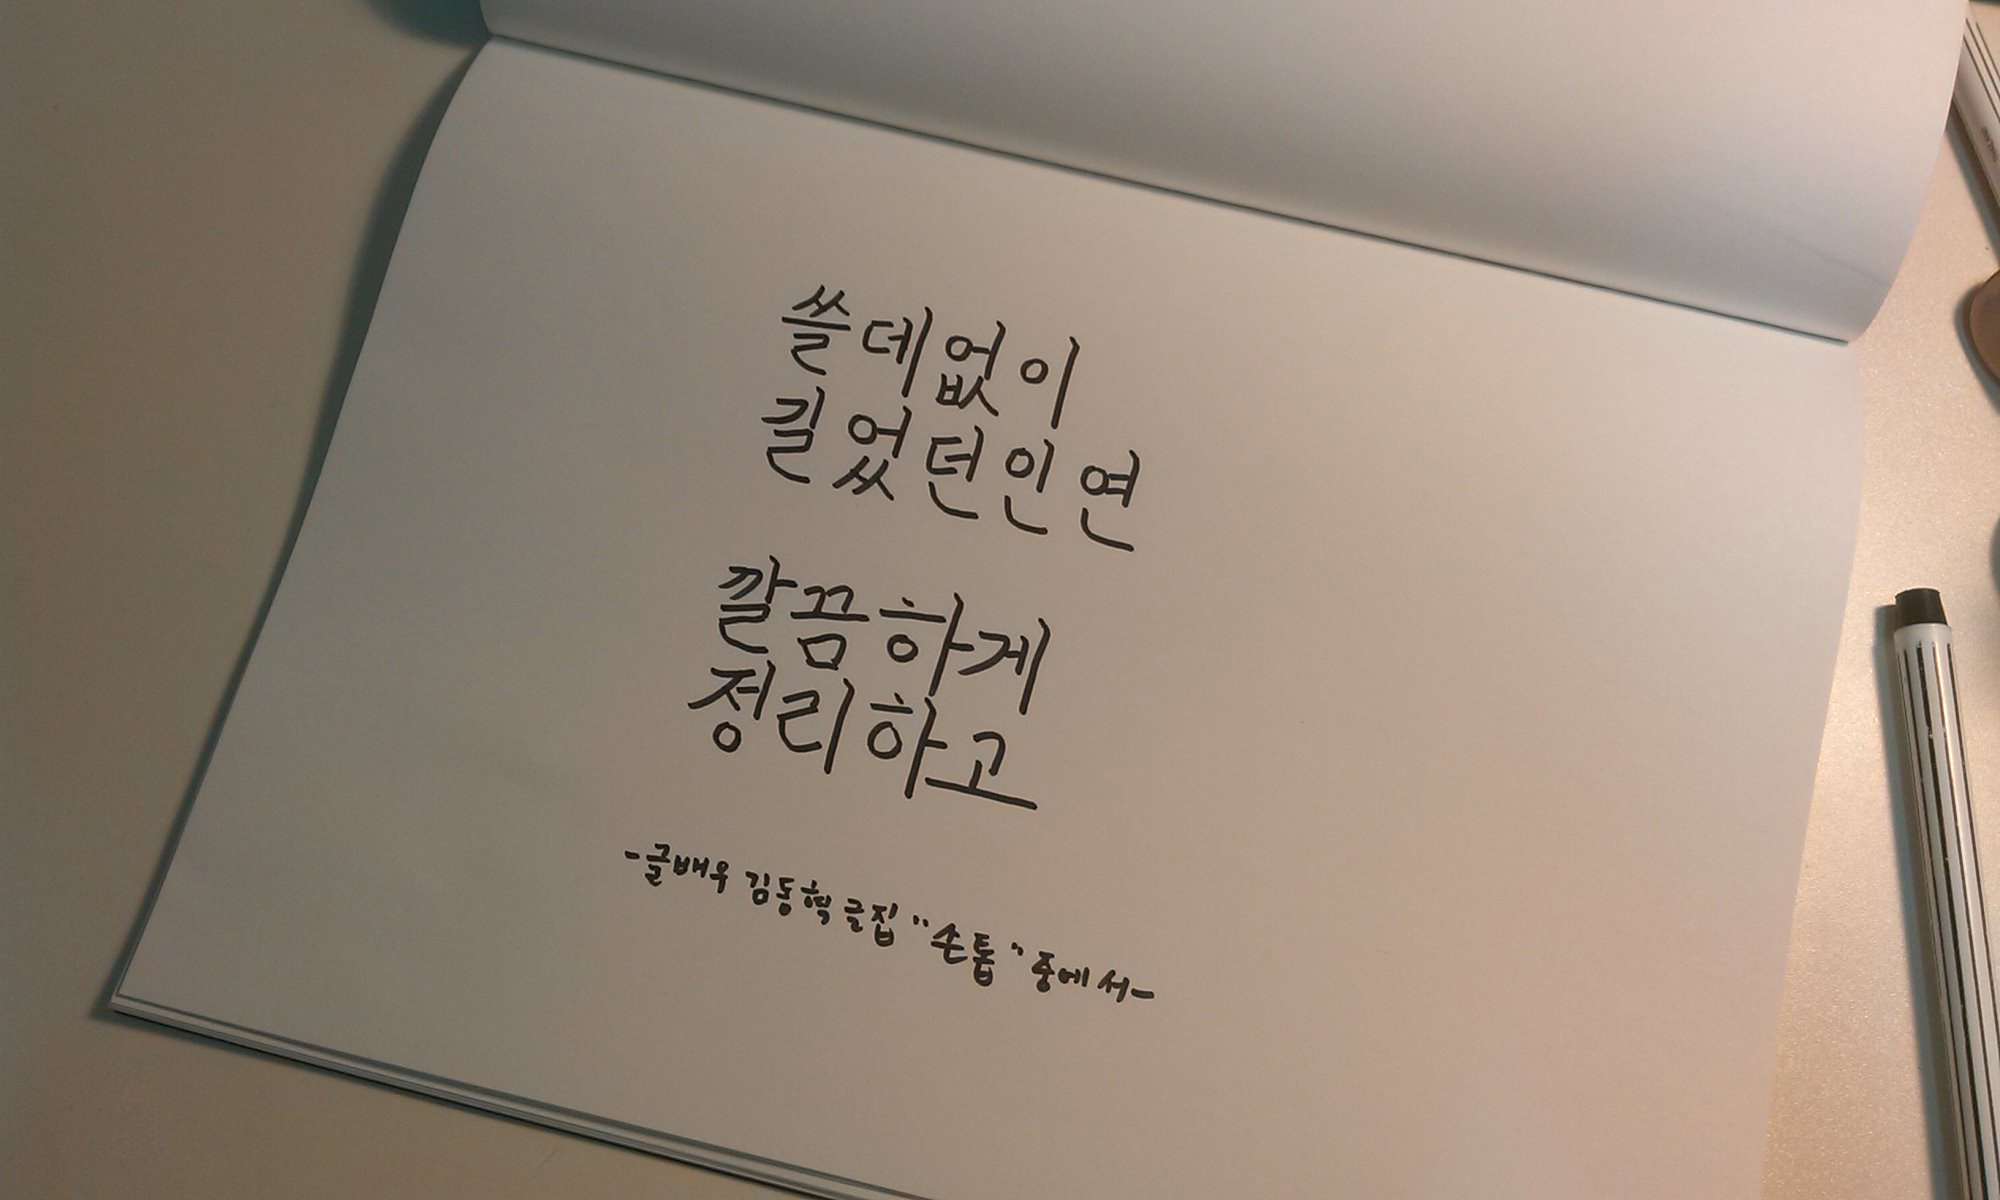 쓸데없이
길었던인연
깔끔하게
정리하고
-글배우 김동혁 글집 "손톱" 중에서-